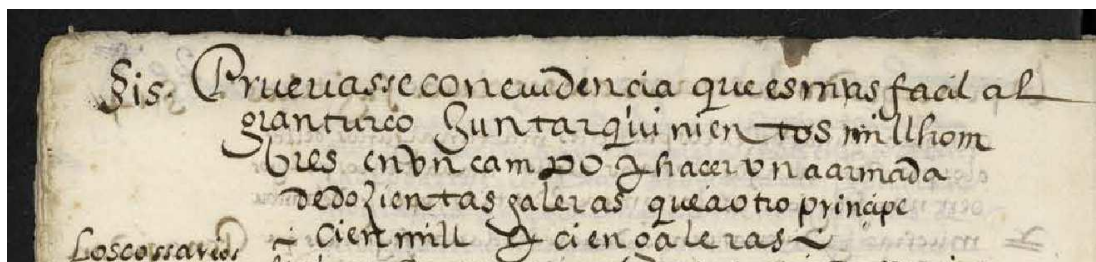 §is. Pruevasse con evidencia que es mas facil al
gran turco Juntar quinientos mill hom
bres en vn campo y hacer vna armada
de dozientas galeras que a otro principe
cien mill y cien galeras
Los cossarios